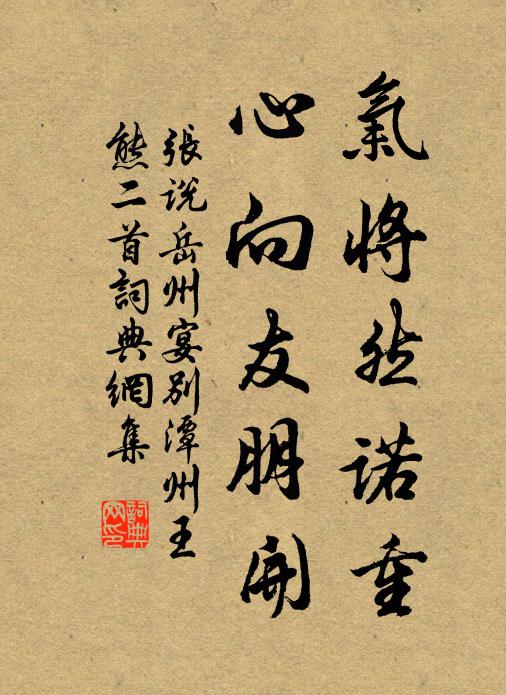 氣將然諾重
心向友朋開
張說岳州宴別潭州王
熊二首詞典網集
詞典
网印